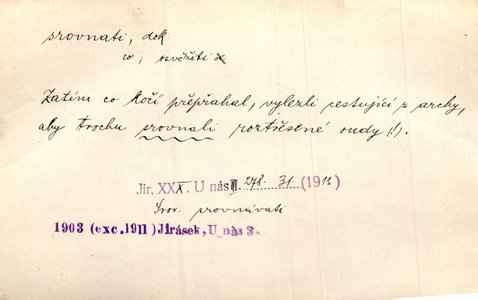 srovnati, dok.
co; osvěžiti
Zatím co kočí přepřahal, vylezli cestující z archy,
aby trochu srovnali roztřesené oudy (!).
Jir. XXX. U nás II. 278. 31 (1911)
Srov. srovnávati
1903 (exc. 1911) Jirásek, U nás 3.